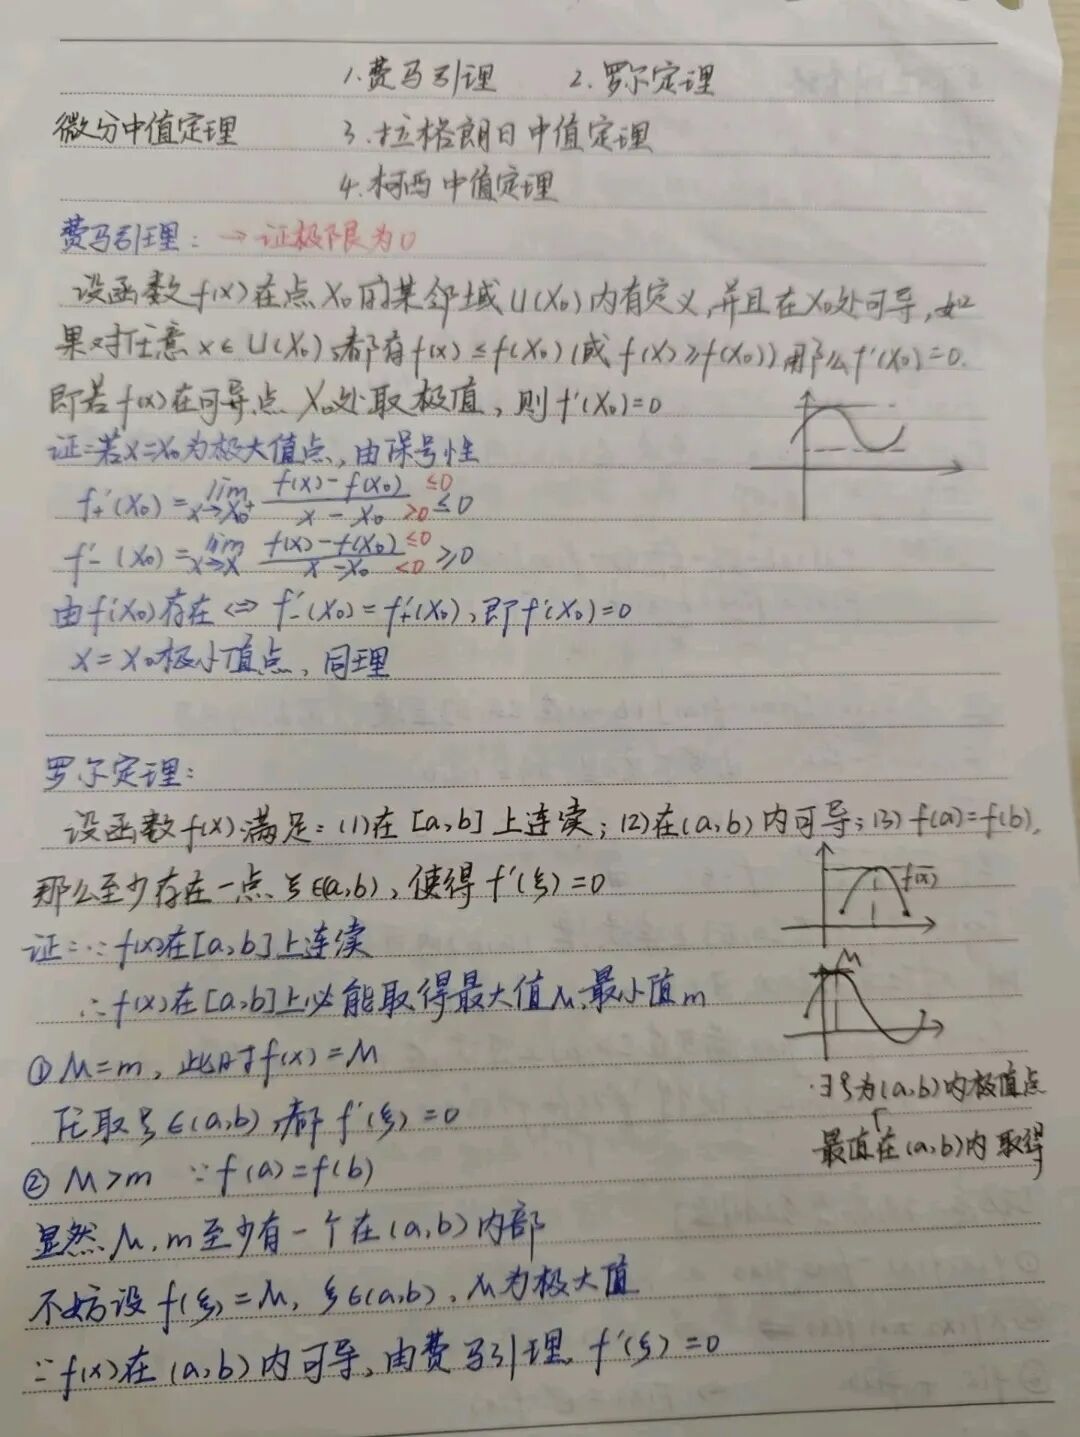 1.费马引理 2.罗尔定理
微分中值定理 3.拉格朗日中值定理
4.柯西中值定理
费马引理: →证极限为0
设函数f(x)在点X₀的某邻域U(X₀)内有定义,并且在X₀处可导,如
果对任意x∈U(X₀),都有f(x)≤f(X₀)(或f(x)≥f(X₀)),那么f'(X₀)=0.
即若f(x)在可导点X₀处取极值,则f'(X₀)=0
证:若x=X₀为极大值点,由保号性
f₊'(X₀)=lim x→X₀⁺ (f(x)-f(X₀))/(x-X₀) ≤0 >0 ≤0
f'₋(X₀)=lim x→X (f(x)-f(X₀))/(x-X₀) ≤0 <0 ≥0
由f'(X₀)存在⇔f'₋(X₀)=f'₊(X₀),即f'(X₀)=0
x=X₀极小值点,同理
罗尔定理:
设函数f(x)满足:(1)在[a,b]上连续;(2)在(a,b)内可导;(3)f(a)=f(b),
那么至少存在一点ξ∈(a,b),使得f'(ξ)=0
f(x)
证:∵f(x)在[a,b]上连续
M
∴f(x)在[a,b]上必能取得最大值M,最小值m
①M=m,此时f(x)=M
∃ξ为(a,b)内极值点
任取ξ∈(a,b),都f'(ξ)=0
↑
最值在(a,b)内取得
②M>m ∵f(a)=f(b)
显然M,m至少有一个在(a,b)内部
不妨设f(ξ)=M,ξ∈(a,b),M为极大值
∵f(x)在(a,b)内可导,由费马引理,f'(ξ)=0